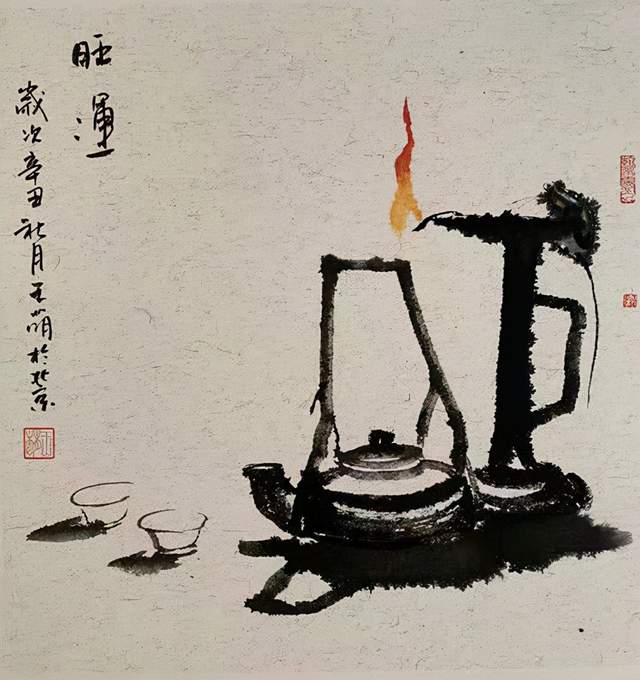 旺運
歲次辛丑秋月王萌於北京